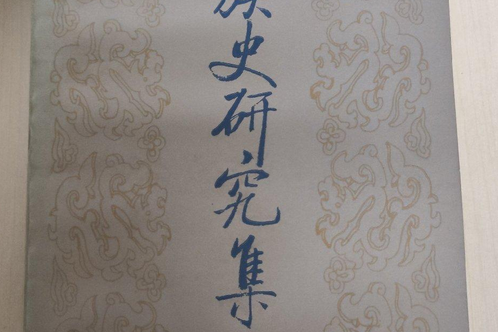 族史研究集